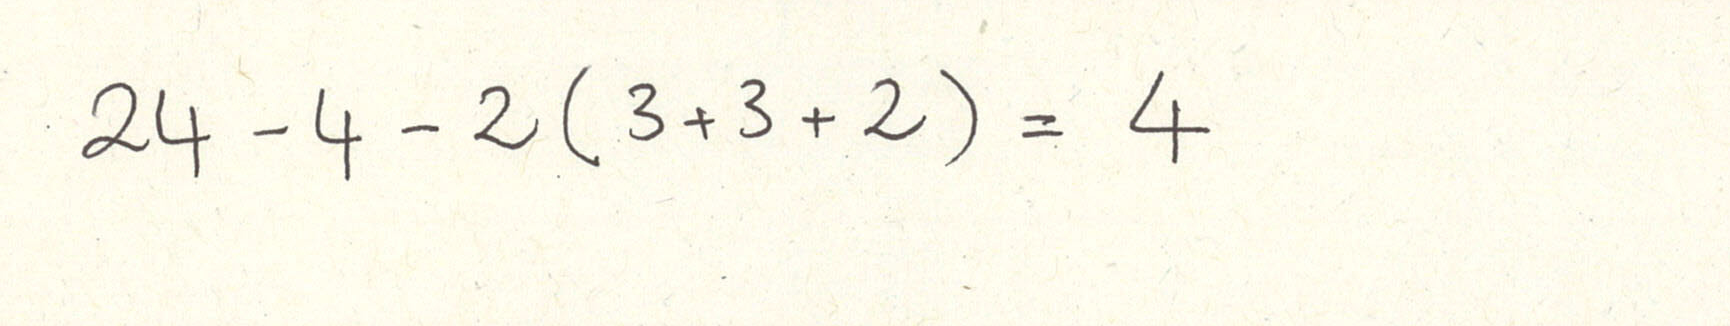 24 - 4 - 2 ( 3 + 3 + 2 ) = 4